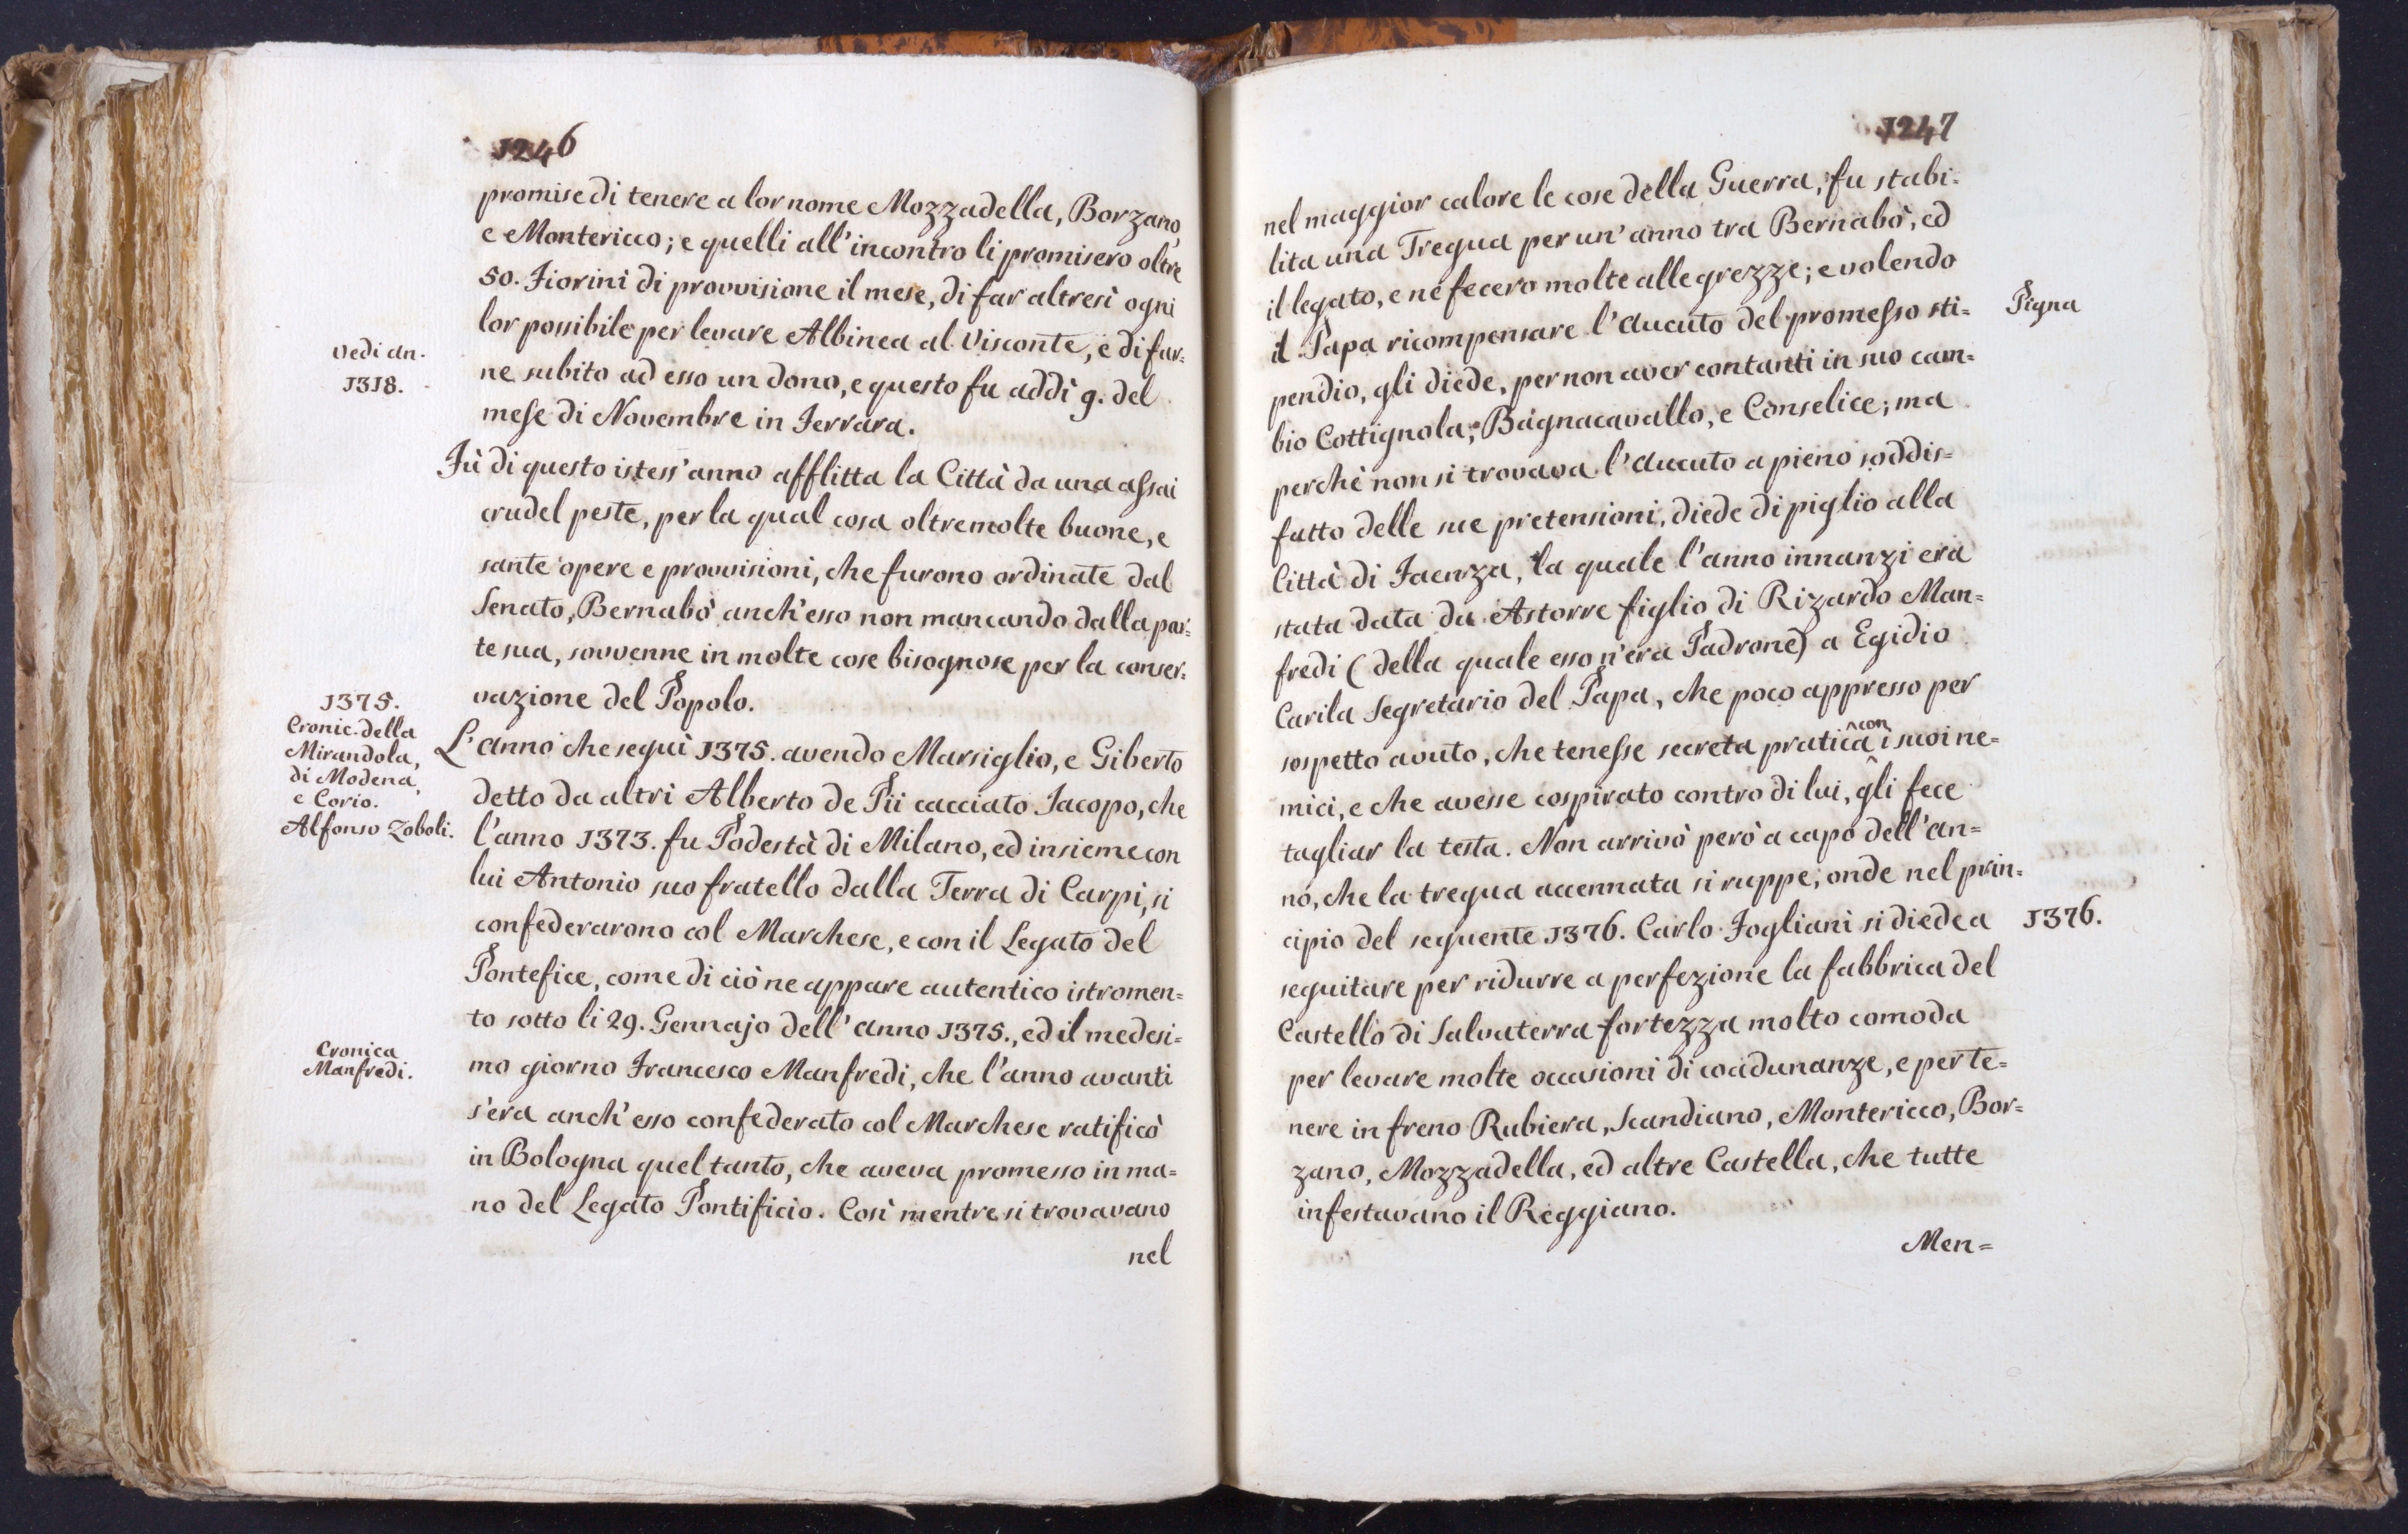 1246
promise di tenere a lor nome Mozzadella, Borzano,
e Montericco; e quelli all'incontro li promisero oltre
50. Fiorini di provvisione il mese, di far altresì ogni
lor possibile per levare Albinea al Visconte, e di far=
vedi an.
1318.
ne subito ad esso un dono, e questo fu addì 9. del
mese di Novembre in Ferrara.
Fù di questo istess'anno afflitta la Città da una assai
crudel peste, per la qual cosa oltre molte buone, e
sante opere e provvisioni, che furono ordinate dal
Senato, Bernabò anch'esso non mancando dalla par=
te sua, sovvenne in molte cose bisognose per la conser=
vazione del Popolo.
1375.
Cronic. della
Mirandola,
di Modena,
e Corio.
Alfonso Zoboli.
L'anno che seguì 1375. avendo Marsiglio, e Giberto
detto da altri Alberto de Pii cacciato Jacopo, che
l'anno 1373. fu Podestà di Milano, ed insieme con
lui Antonio suo fratello dalla Terra di Carpi, si
confederarono col Marchese, e con il Legato del
Pontefice, come di ciò ne appare autentico istromen=
to sotto li 29. Gennajo dell'anno 1375., ed il medesi=
Cronica
Manfredi.
mo giorno Francesco Manfredi, che l'anno avanti
s'era anch'esso confederato col Marchese ratificò
in Bologna quel tanto, che aveva promesso in ma=
no del Legato Pontificio. Così mentre si trovavano
nel
1247
nel maggior calore le cose della Guerra, fu stabi=
lita una Tregua per un'anno tra Bernabò, ed
il legato, e ne fecero molte allegrezze; e volendo
il Papa ricompensare l'Aucuto del promesso sti=
Pigna
pendio, gli diede, per non aver contanti in suo cam=
bio Cottignola, Bagnacavallo, e Conselice; ma
perchè non si trovava l'Aucuto a pieno soddis=
fatto delle sue pretensioni, diede di piglio alla
Città di Faenza, la quale l'anno innanzi era
stata data da Astorre figlio di Rizardo Man=
fredi (della quale esso n'era Padrone) a Egidio
Carila Segretario del Papa, che poco appresso per
sospetto avuto, che tenesse secreta pratica con i suoi ne=
mici, e che avesse cospirato contro di lui, gli fece
tagliar la testa. Non arrivò però a capo dell'an=
no, che la tregua accennata si ruppe; onde nel prin=
cipio del seguente 1376. Carlo Fogliani si diede a
1376.
seguitare per ridurre a perfezione la fabbrica del
Castello di Salvaterra fortezza molto comoda
per levare molte occasioni di coadunanze, e per te=
nere in freno Rubiera, Scandiano, Montericco, Bor=
zano, Mozzadella, ed altre Castella, che tutte
infestavano il Reggiano.
Men=